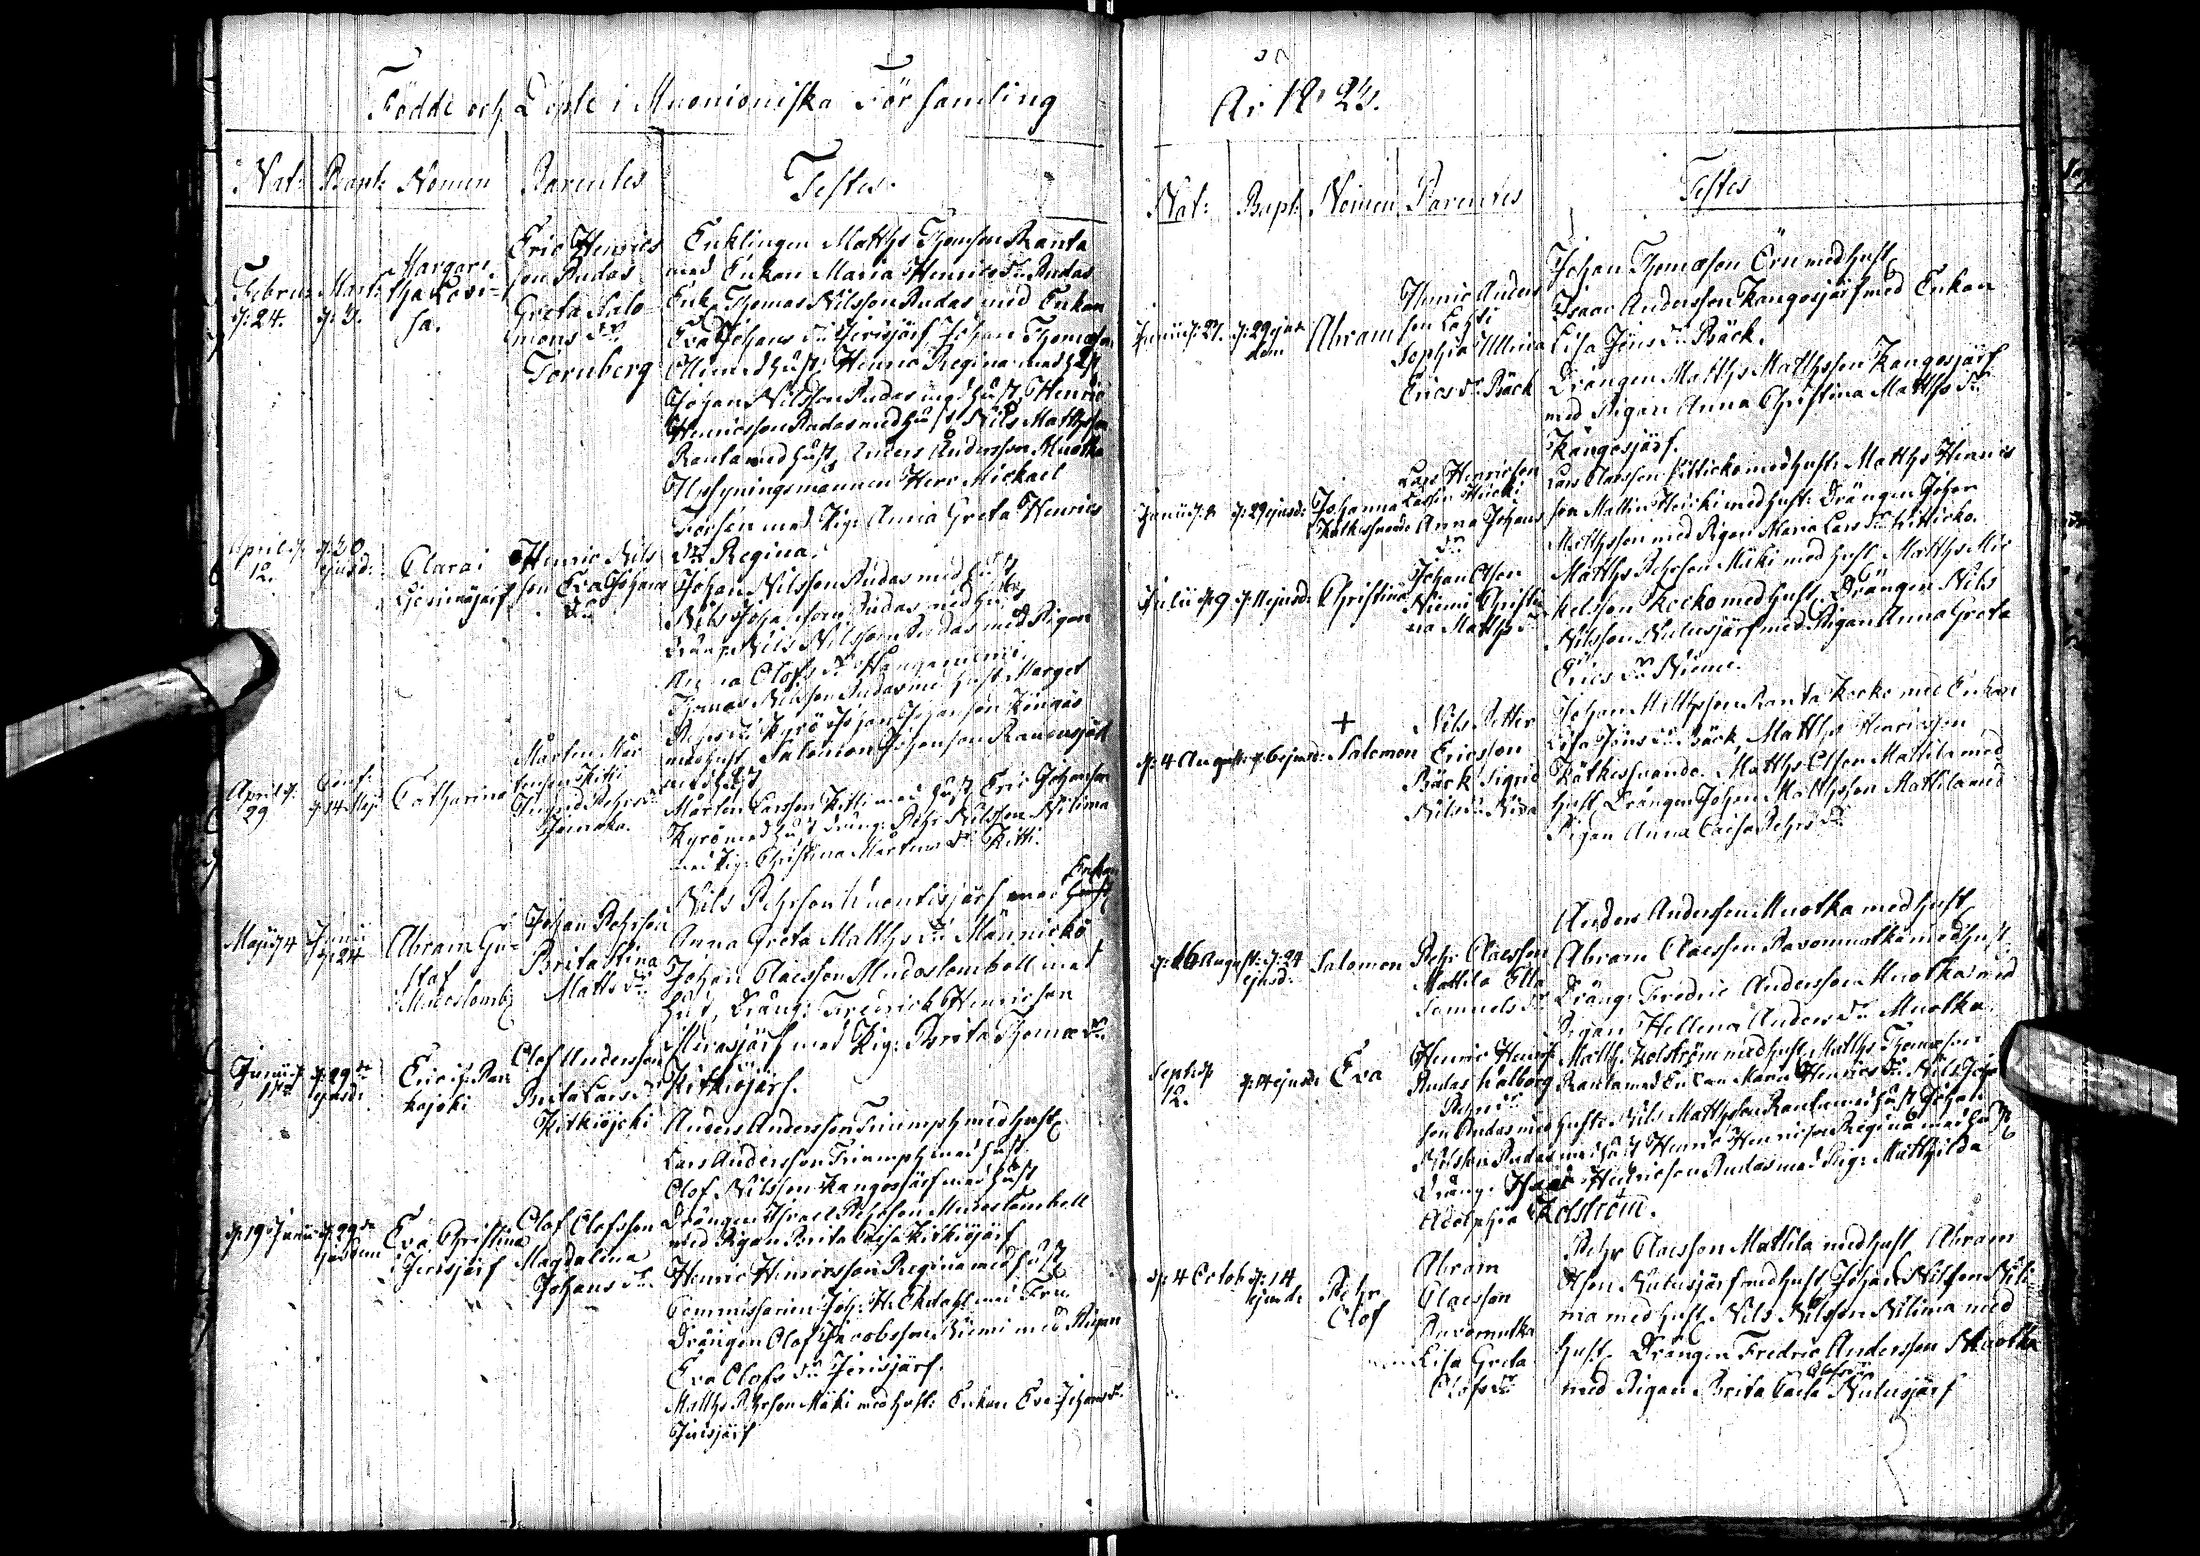 Födde och Döpte i Muonioniska Församling
Nat: Bapt: Nomen Parentes Testes.
Februr Marti Margare-
d: 24. d: 3. tha Lovi-
sa.
Eric Henrics
son Rudas
Greta Salo-
mons dr
Tornberg
Enklingen Matths Thomsson Ranta
med Enkan Maria Henrics dr Rudas
Enkl. Thomas Nilsson Rudas med Enkan
Eva Johans dr Jerisjärf Johan Thomasson
med hust. Henric Regina med hust
Johan Nilsson Rudas med hust Henric
Henricsson Rudas med hust Nils Matthsson
Ranta med hust, Anders Andersson Muotka
Uppsyningsmannen Herr Michael
Forsén med Pig: Anna Greta Henrics
dr Regina.
April d. d: 20
12. ejusd:
Clara i
Jerisjärf
Henric Nils
son Eva Johans
dr
Johan Nilsson Rudas med hust
Nils Johansson Rudas med hust
Dräng: Nils Nilsson Rudas med Pigan
Anna Olofs dr Hangasniemi
Thomas Nilsson Rudas med hust Marget
Pehrs dr Kyrö Johan Johansson Köngäs
med hust, Salomon Johansson Rauvusjärf
med hust
April d. 29
d: 14 Maji
Catharina
Mårten Mår
tensson Kitti
Ingrid Pehrs dr
Mårten Larsson Kitti med hust, Eric Johansson
Kyrö med hust dräng: Pehr Nilsson Nilima
med Pig: Christina Mårtens dr Kitti.
Maji d 4 Junii
d: 24
Abram Gu-
staf
Muoslomb
Johan Pehrsson
Brita Stina
Matts dr
Nils Pehrsson Kuontisjärf med Enkan
Anna Greta Matths dr Männickö
Johan Claesson Mudoslomboll med
hust, Dräng: Friedrich Henricsson
Muosjärf med Pig: Brita Thomæ dr
Kitkiöjärf.
Junii d.
d: 29
ejusd:
Eric i Par
kajoki
Olof Andersson
Brita Lars dr
Kitkiöjoki
Anders Andersson Triumph med hust
Lars Andersson Triumph med hust
Olof Nilsson Kangosjärf med hust
Drängen Israel Pehrsson Muoslomboll
med Pigan Brita Caisa Kitkiöjärf
d: 19 Junii d: 29
ejusdem
Eva Christina
i Jerisjärf
Olof Olofsson
Magdalena
Johans dr
Henric Henricsson Regina med hust
Commissarien Joh: H. Ekdahl med Fru
Drängen Olof Jacobsson Niemi med Pigan
Eva Olofs dr Jerisjärf.
Matths Pehrsson Mäki med hust: Enkan Eva Johans dr
Jerisjärf
År 1823.
Nat: Bapt: Nomen Parentes Testes
Junii d: 27. d: 29 ejus
dem
Abram
Henric Anders
son Lahti
Sophia Ulrica
Erics dr Bäck
Johan Thomasson Örn med hust
Isaac Andersson Kangosjärf med Enkan
Lisa Jöns dr Bäck.
Drängen Matths Matthsson Kangosjärf
med Pigan Anna Christina Matths dr
Kangosjärf.
Junii d: d: 29 ejusd:
Johanna
Kätkesuando
Lars Henricsson
Anna Johans
dr
Lars Claesson Kittickö med hust: Matths Henrics
son Heicki med hust: Drängen Johan
Matthsson med Pigan Maria Lars dr Kittickö.
Julii d: 9 d: 11 ejusd: Christina
Johan Olsson
Niemi Christi
na Matths dr
Matths Pehrsson Mäki med hust Matths Mic
kelsson Kecko med hust, Drängen Nils
Nilsson Nulusjärf med Pigan Anna Greta
Erics dr Niemi.
+
d: 4 August: d: 6 ejusd: Salomon
Nils Petter
Ericsson
Bäck Sigrid
Nils dr Niva
Johan Matthsson Ranta Kecko med Enkan
Lisa Jöns dr Bäck Matths Henricsson
Kätkesuando. Matths Olsson Mattila med
hust Drängen Johan Matthsson Mattila med
Pigan Anna Caisa Pehrs dr
d: 16 August: d: 24
ejusd:
Salomon
Pehr Claesson
Mattila Ella
Samuels dr
Anders Andersson Muotka med hust
Abram Claesson Ravomutka med hust,
Dräng: Fredric Andersson Muotka med
Pigan Hellena Anders dr Muotka.
Sept: d
12.
d: 14 ejusd: Eva
Henric Henrics
Rudas Walborg
Pehrs dr
Matth. Kolström med hust, Matths Thomasson
Ranta med Enkan Maria Henrics dr Nils Johans
son Rudas med hust: Nils Matthsson Ranta med hust Johan
Nilsson Rudas med hust Henric Henricsson Regina med hust
Dräng: Isaac Henricsson Rudas med Pig: Mathilda
Adolphia Kolström.
d: 4 Octob d: 14
ejusd:
Pehr
Olof
Abram
Claesson
Ravomutka
Lisa Greta
Olofs dr
Pehr Claesson Mattila med hust Abram
Olsson Nulusjärf med hust, Johan Nilsson Nili-
ma med hust, Nils Nilsson Nilima med
hust. Drängen Fredric Andersson Muotka
med Pigan Brita Caisa Olofs dr Nulusjärf